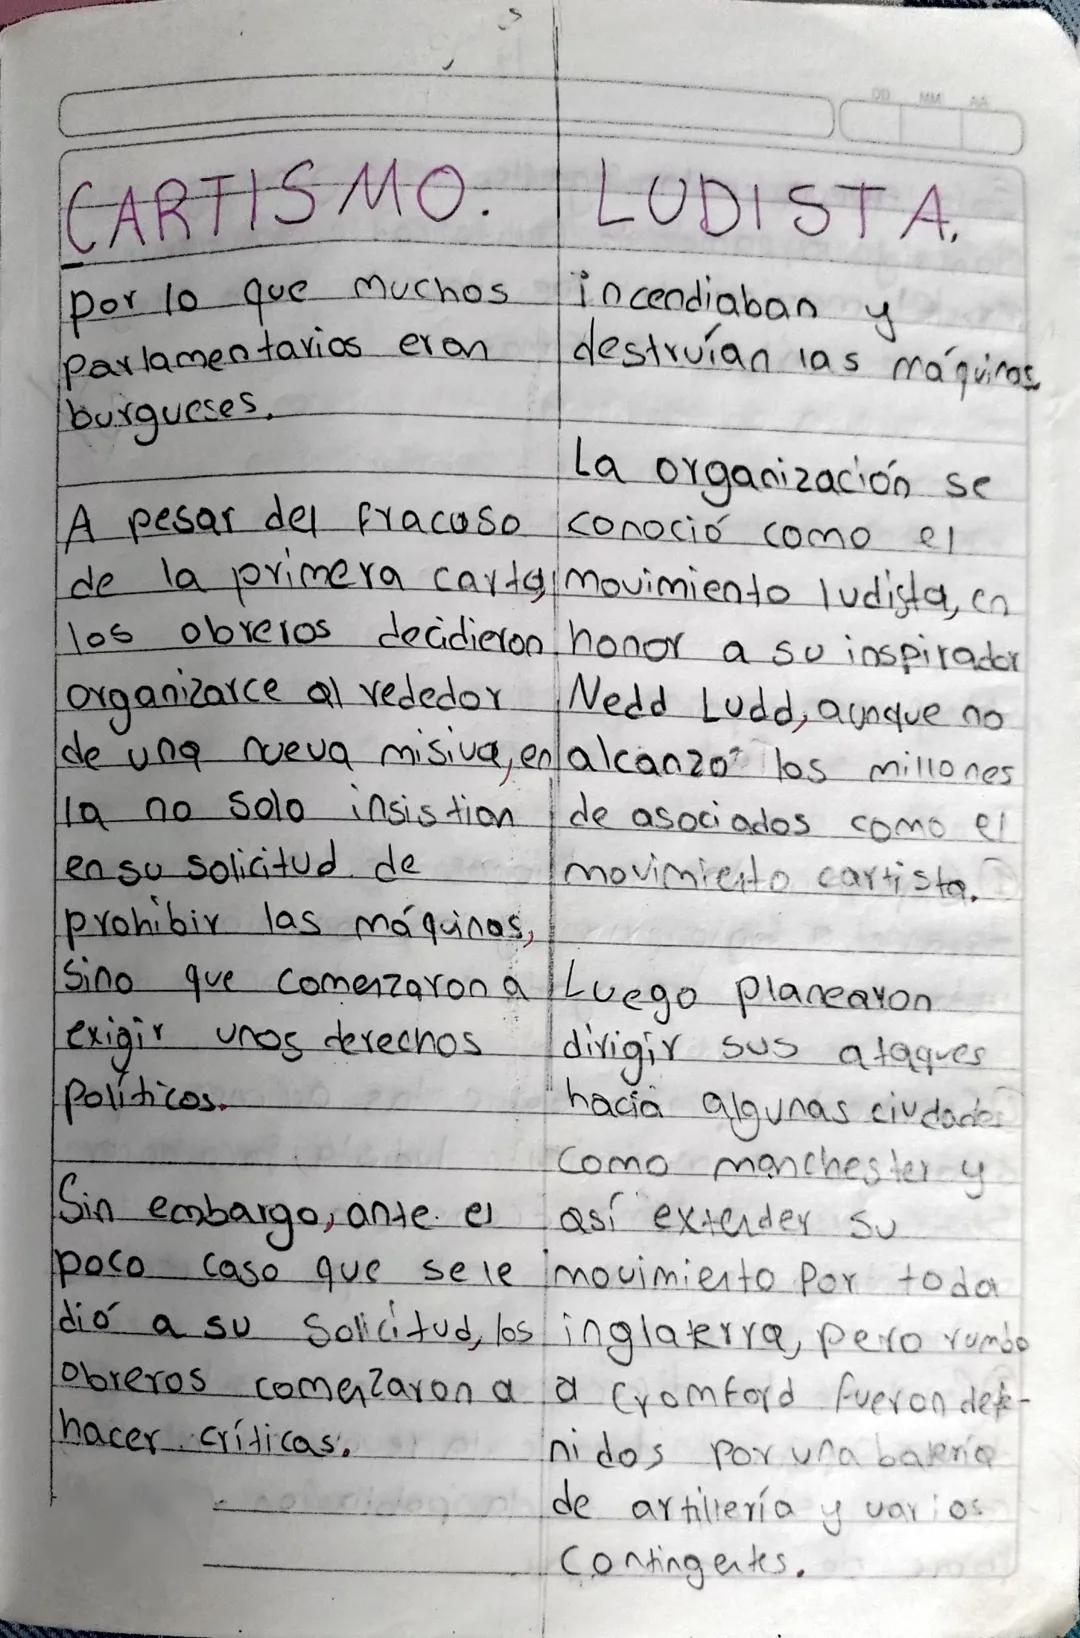 DD MM AA
CARTISMO.
por lo que muchos
parlamentarios eran
burgueses.
A pesar del fracaso
de la primera carta,
los obreros decidieron
organizarce al rededor
de una nueva misiva, en
la no solo insistian
en su solicitud de
prohibir las máquinas,
sino que comenzaron a
exigir unos derechos
políticos.
Sin embargo, ante el
poco caso que se le
dió a su solicitud, los
obreros comenzaron a
hacer críticas.
LUDISTA.
incendiaban y
destruían las máquinas
La organización se
conoció como el
movimiento ludista, en
honor a su inspirador
Nedd Ludd, aunque no
alcanzó los millones
de asociados como el
movimiento cartista.
Luego planearon
dirigir sus ataques
hacia algunas ciudades
como manchester y
así extender su
movimiento por toda
inglaterra, pero rumbo
a Cromford fueron dete-
nidos por una batería
de artillería y varios
contingentes.